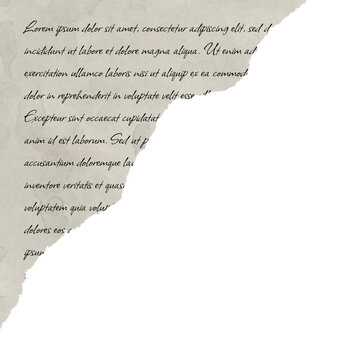 Lorem ipsum dolor sit amet, consectetur adipiscing elit, sed d
incididunt ut labore et dolore magna aliqua. Ut enim ad
exercitation ullamco laboris nisi ut aliquip ex ea commod
dolor in reprehenderit in voluptate velit esse
Excepteur sint occaecat cupidatat
anim id est laborum. Sed ut p
accusantium doloremque la
inventore veritatis et quasi
voluptatem quia volup
dolores eos c
ipsum